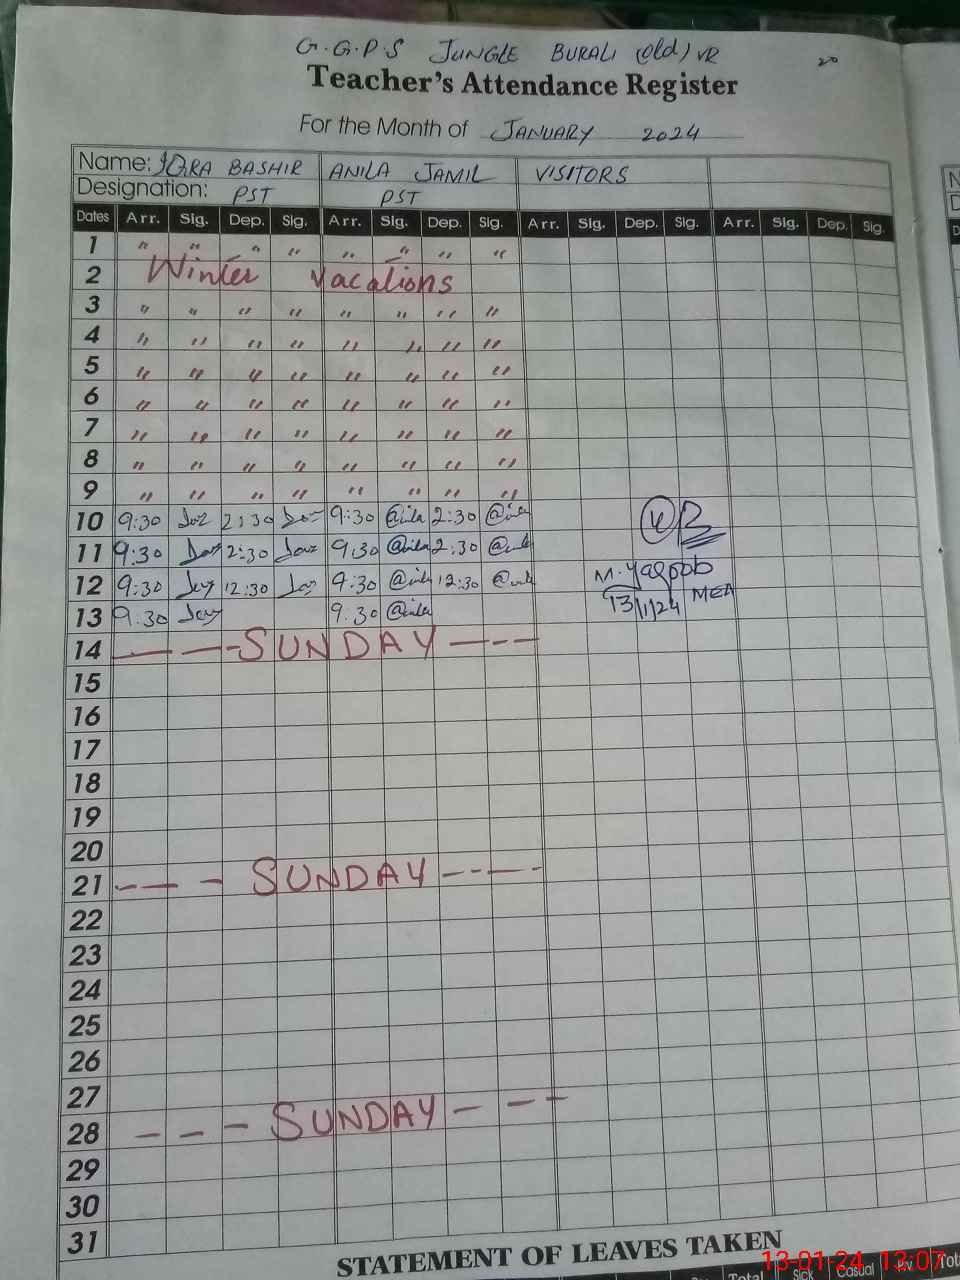 G.G.P.S JUNGLE BURALI (old) VR 20
Teacher's Attendance Register
For the Month of JANUARY 2024
Name: IQRA BASHIR ANILA JAMIL VISITORS
Designation: PST PST
Dates Arr. Sig. Dep. Sig. Arr. Sig. Dep. Sig. Arr. Sig. Dep. Sig. Arr. Sig. Dep. Sig.
1 " " " " " " " "
2 Winter Vacations
3 " " " " " " " "
4 " " " " " " " "
5 " " " " " " " "
6 " " " " " " " "
7 " " " " " " " "
8 " " " " " " " "
9 " " " " " " " "
10 9:30 2:30 9:30 @nila 2:30 @nila
11 9:30 2:30 9:30 @nila 2:30 @nila
12 9:30 12:30 9:30 @nila 12:30 @nila M. Yaqoob
13 9:30 9:30 @nila 13/1/24 MEA
14 — — - SUNDAY — - - -
15
16
17
18
19
20
21 - — - SUNDAY - - — -
22
23
24
25
26
27
28 - - - SUNDAY - - -
29
30
31
STATEMENT OF LEAVES TAKEN
Total Sick Casual Prv. Total
13-01-24 13:07